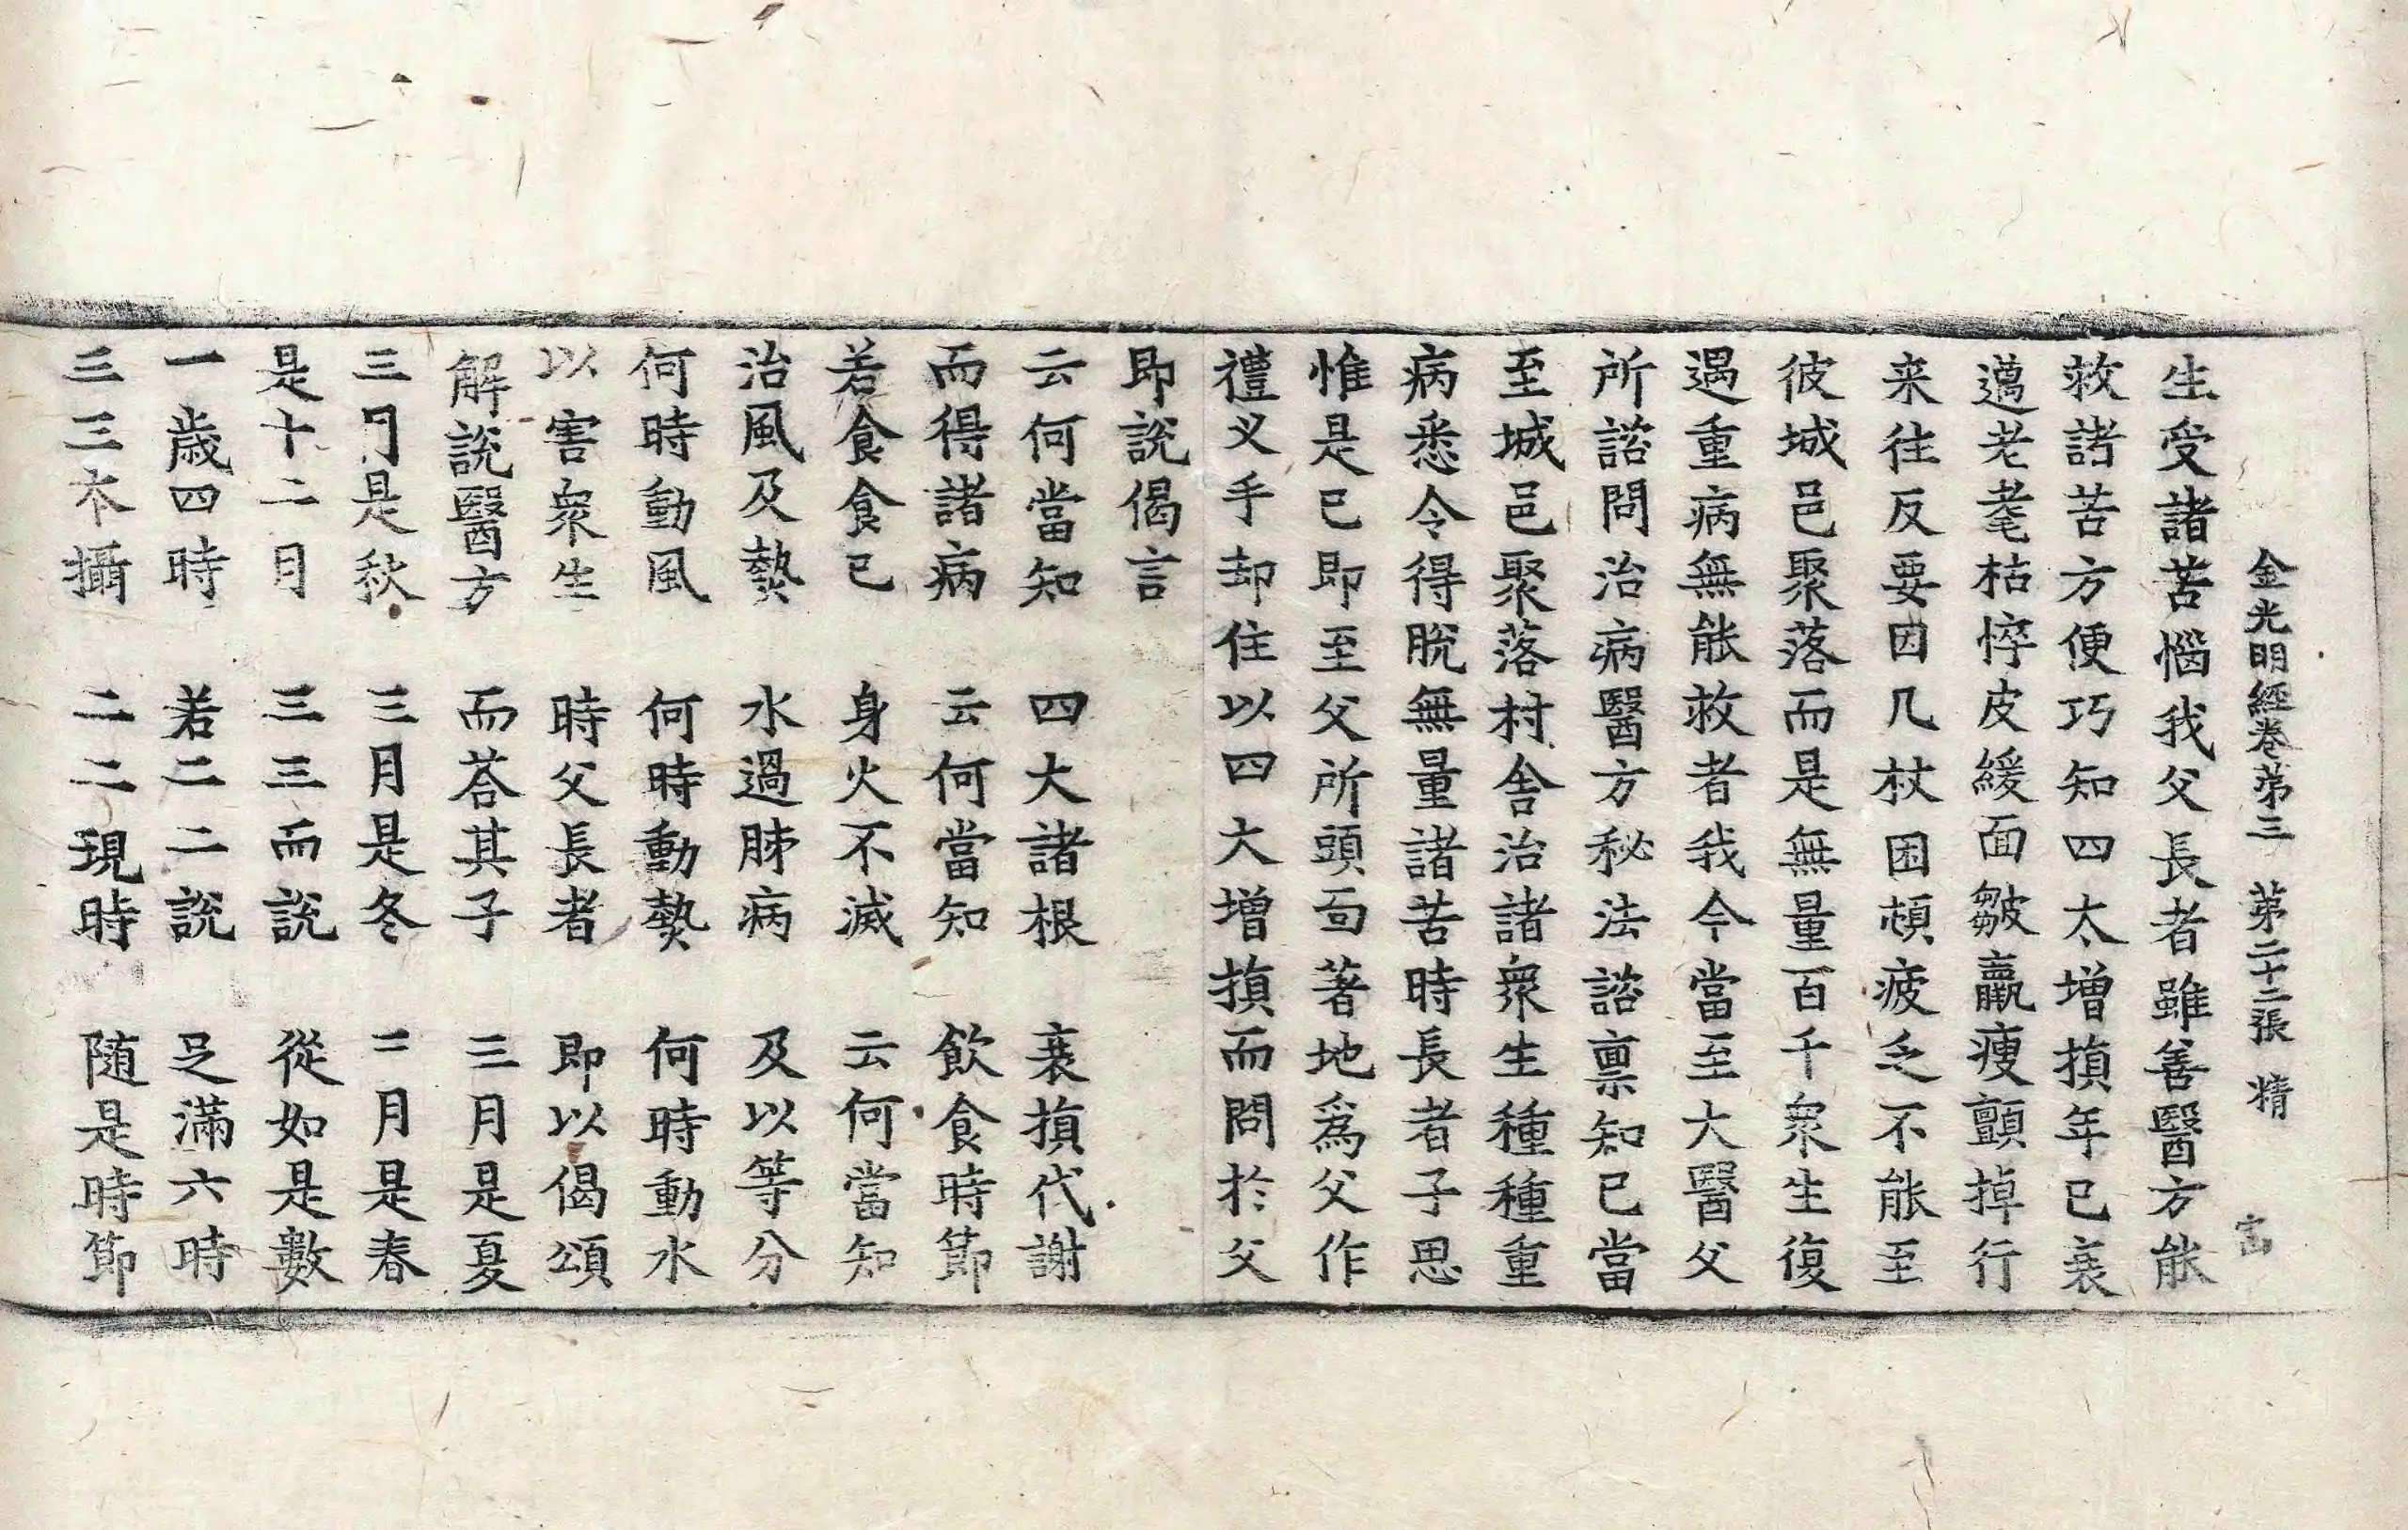 金光明經卷苐三 苐二十二張 精
生受諸苦惱我父長者雖善醫方能
救諸苦方便巧知四大增損年已衰
邁老耄枯悴皮緩面皺羸瘦顫掉行
来往反要因几杖困頓疲乏不能至
彼城邑聚落而是無量百千衆生復
遇重病無能救者我今當至大醫父
所諮問治病醫方秘法諮禀知已當
至城邑聚落村舍治諸衆生種種重
病悉令得脫無量諸苦時長者子思
惟是已即至父所頭面著地爲父作
禮叉手却住以四大增損而問於父
即說偈言
云何當知 四大諸根 衰損代謝
而得諸病 云何當知 飲食時節
若食食已 身火不滅 云何當知
治風及熱 水過肺病 及以等分
何時動風 何時動熱 何時動水
以害衆生 時父長者 即以偈頌
解說醫方 而荅其子 三月是夏
三月是秋 三月是冬 三月是春
是十二月 三三而說 從如是數
一歲四時 若二二說 足滿六時
三三本攝 二二現時 随是時節